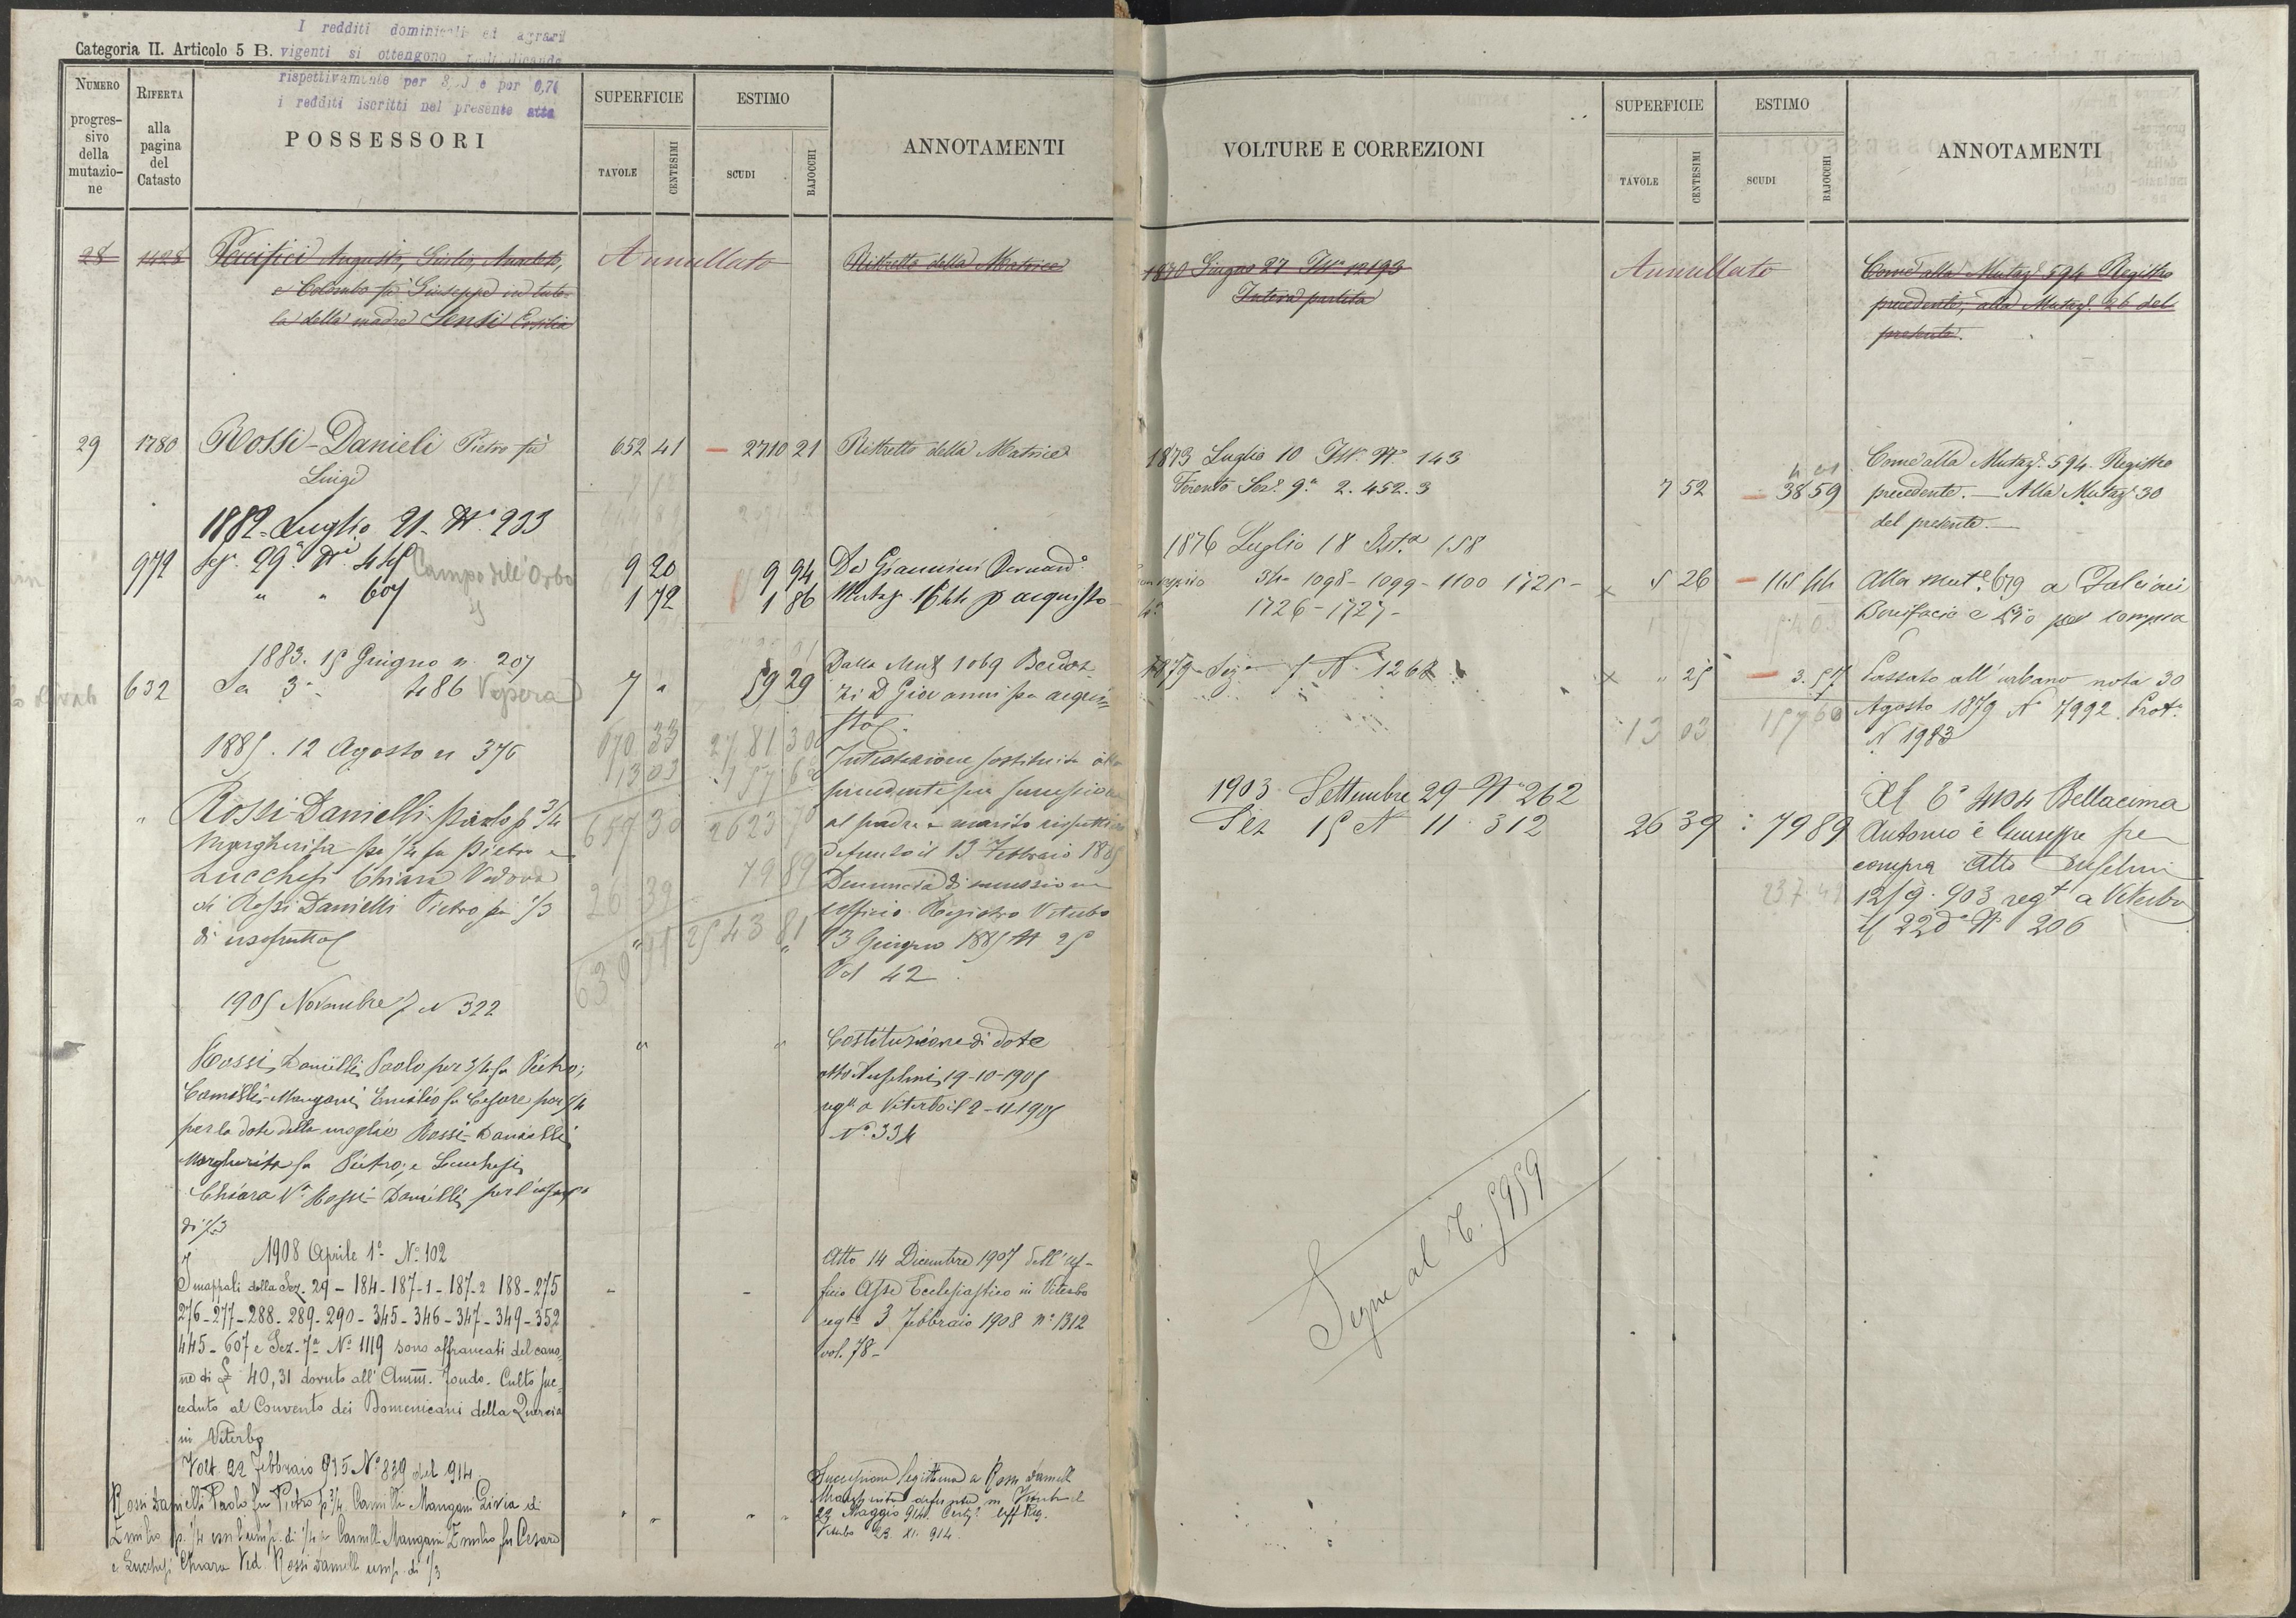 I redditi dominicali ed agrari
Categoria II. Articolo 5 B. vigenti si ottengono
rispettivamente per e per 0,74
i redditi iscritti nel presente atto
NUMERO
progres-
sivo
della
mutazio-
ne
RIFERTA
alla
pagina
del
Catasto
POSSESSORI
SUPERFICIE
TAVOLE
CENTESIMI
ESTIMO
SCUDI
BAJOCCHI
ANNOTAMENTI
28 1428 Augusto, Giulio,
e Colombo fu Giuseppe in tute-
la della madre Sensi Ersilia
Annullato
Ristretto della Matrice
29 1780 Rossi-Danieli Pietro fu
Luigi
652 41 2710 21 Ristretto della Matrice
1882 Luglio 21 N. 233
972 Sez. 29ª N. 445 Campo dell'Orbo 9 20 9 94 Da Giannini Bernardº
" " 607 1 72 1 86 Mutaz. 1644 p acquisto
1883. 15 Giugno n. 207
632 Sez 3ª 486 Vepera 7 " 59 29
Dalla Mut 1069
zi D Giovanni per acqui-
sto
670 33 2781 30
13 03 157 60
657 30 2623 70
26 39 79 89
630 91 2543 81
1885. 12 Agosto n 376
" Rossi-Danielli Paolo p 3/4
Margherita per 1/4 fu Pietro e
Lucchesi Chiara Vedova
di Rossi Danielli Pietro per 1/3
di usofrutto
Intestazione sostituita alla
precedente per successione
al padre e marito rispettivo
defunto il 13 Febbraio 1885
Denuncia di successione
Ufficio Registro Viterbo
13 Giugno 1885 N 25
Vol 42
1905 Novembre 7 N 322
Rossi Danielli Paolo per 3/4 fu Pietro;
Camilli-Mangani Emilio fu Cesare per 1/4
per la dote della moglie Rossi-Danielli
Margherita fu Pietro; e Lucchesi
Chiara Vª Rossi-Danielli per l'usufº
di 1/3
Costituzione di dote
atto Anselmi 19-10-1905
regto a Viterbo il 2-11-1905
Nº 334
1908 Aprile 1º Nº 102
I mappali della Sez. 29 - 184 - 187-1 - 187-2 188 - 275
276 - 277 - 288 - 289 - 290 - 345 - 346 - 347 - 349 - 352
445 - 607 e Sez. 7ª Nº 1119 sono affrancati del cano-
ne di £ 40,31 dovuto all'Amm. Fondo. Culto suc-
ceduto al Convento dei Domenicani della Quercia
in Viterbo
Atto 14 Dicembre 1907 dell'Uf-
ficio Asse Ecclesiastico in Viterbo
regto 3 Febbraio 1908 nº 1312
vol. 78 -
Volt. 22 Febbraio 915 Nº 839 del 914
Rossi Danielli Paolo fu Pietro p 3/4 Camilli Mangani Livia di
Emilio p. 1/4 con l'usuf. di 1/4 a Camilli Mangani Emilio fu Cesare
e Lucchesi Chiara Ved. Rossi Danielli usuf. di 1/3
Successione legittima a Rossi Danielli
Margherita defunta in Viterbo il
29 Maggio 914. Certif. Uff Reg.
Viterbo 23. XI. 914
VOLTURE E CORREZIONI
SUPERFICIE
TAVOLE
CENTESIMI
ESTIMO
SCUDI
BAJOCCHI
ANNOTAMENTI
1870 Giugno 27 Istª n 193
Intera partita
Annullato
Come alla Mutazº 594 Registro
precedente, alla Mutazº 26 del
presente.
1873 Luglio 10 Istª Nº 143
Ferento Sezº 9ª 2. 452. 3
7 52 38 59
Come alla Mutazº 594 Registro
precedente. - Alla Mutazº 30
del presente. -
1876 Luglio 18 Istª 158
34- 1098 - 1099 - 1100 1725 -
1726 - 1727 -
5 26 115 44
Alla mutª 679 a Falcinei
Bonifacio e per compra
1879 - Sezne 1 Nº 1262
" 25 3. 57
Passato all'urbano nota 30
Agosto 1879 Nº 7992 Protº
N 1983
13 03 157 60
1903 Settembre 29 Nº 262
Sez 15 N 11 312
26 39 79 89
Al Cº 4104 Bellacima
Antonio e Giuseppe per
compra Atto Anselmi
12/9. 903 regto a Viterbo
il 22 dº Nº 206
237 49
Segue al C. 5959